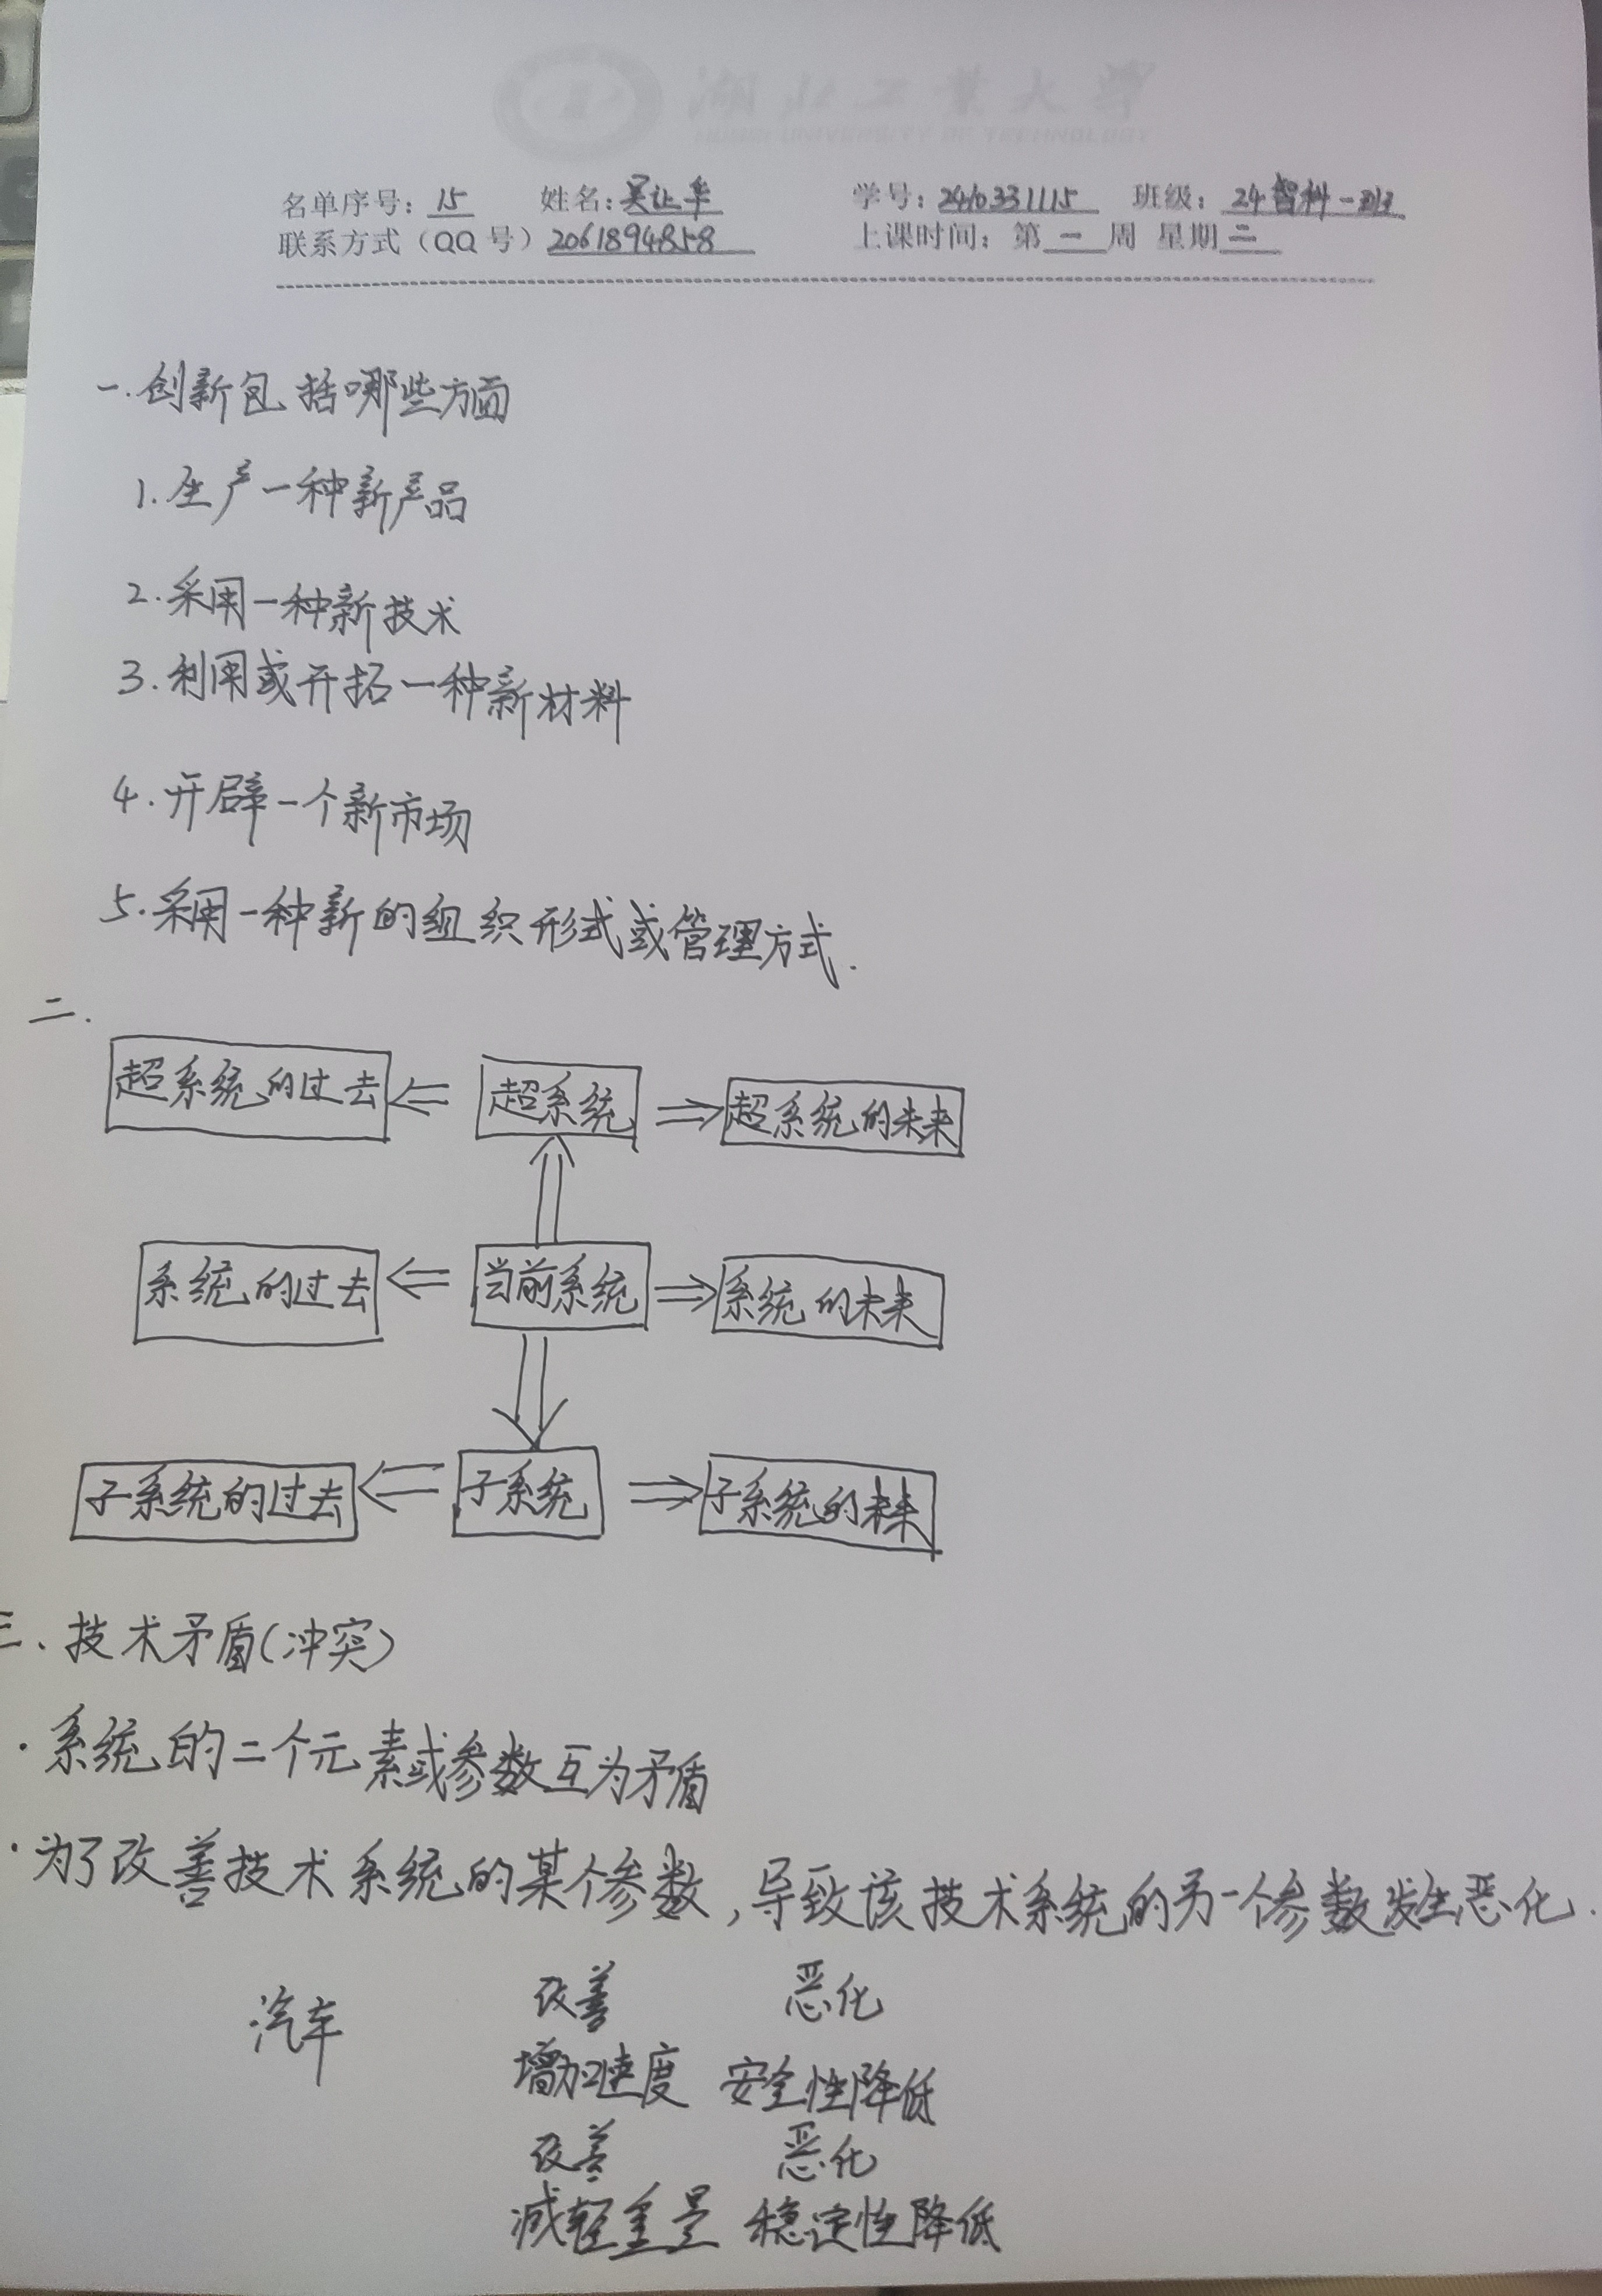 名单序号：15 姓名：吴让华 学号：2410331115 班级：24智科一班
联系方式（QQ号）2061894858 上课时间：第一周 星期二
一.创新包括哪些方面
1.生产一种新产品
2.采用一种新技术
3.利用或开拓一种新材料
4.开辟一个新市场
5.采用一种新的组织形式或管理方式.
二.
超系统的过去 ⇐ 超系统 ⇒ 超系统的未来
系统的过去 ⇐ 当前系统 ⇒ 系统的未来
子系统的过去 ⇐ 子系统 ⇒ 子系统的未来
三、技术矛盾(冲突)
·系统的二个元素或参数互为矛盾
·为了改善技术系统的某个参数,导致该技术系统的另一个参数发生恶化.
汽车 改善 恶化
增加速度 安全性降低
改善 恶化
减轻重量 稳定性降低